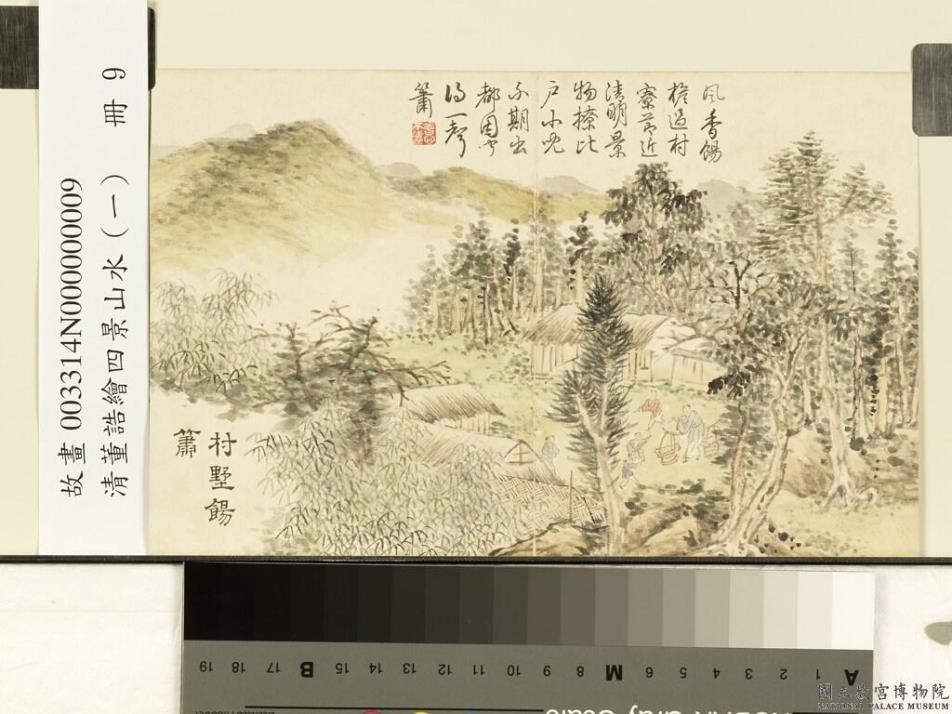 故畫 003314N000000009
清董誥繪四景山水（一） 冊 9
風香餳
擔過村
寮節近
清明景
物撩比
戶小兒
不期出
都因聞
得一聲
簫
村墅餳
簫
19 18 17 B 15 14 13 12 11 10 9 8 M 6 5 4 3 2 1 A
國立故宮博物院
NATIONAL PALACE MUSEUM